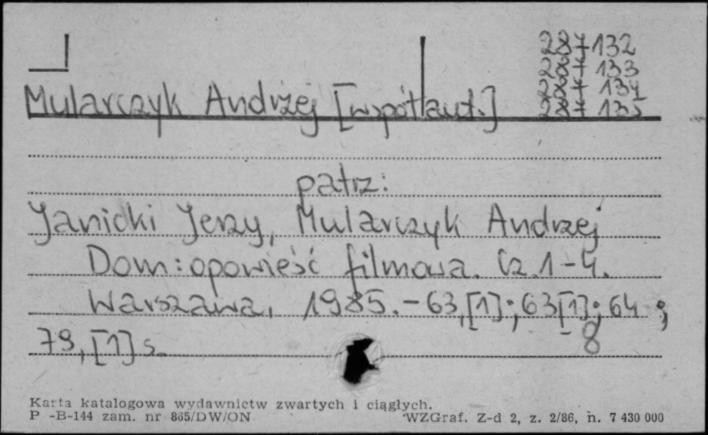 287132
287133
287134
287135
Mularczyk Andrzej [współaut.]
patrz:
Janicki Jerzy, Mularczyk Andrzej
Dom: opowieść filmowa. Cz. 1-4.
Warszawa, 1985. - 63,[1]; 63[1]; 64;
79,[1] s. - 8
Karta katalogowa wydawnictw zwartych i ciągłych.
P -B-144 zam. nr 865/DW/ON WZGraf. Z-d 2, z. 2/86, n. 7 430 000